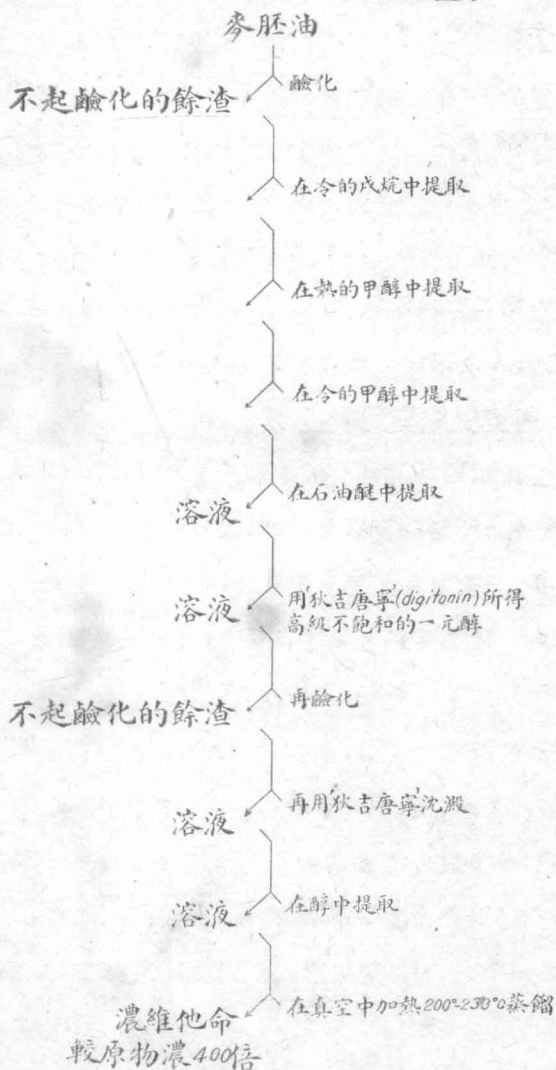 麥胚油
鹼化
不起鹼化的餘渣
在冷的戊烷中提取
在熱的甲醇中提取
在冷的甲醇中提取
在石油醚中提取
溶液
用'狄吉唐寧'(digitonin)所得
高級不飽和的一元醇
溶液
再鹼化
不起鹼化的餘渣
再用'狄吉唐寧'沈澱
溶液
在醇中提取
溶液
在真空中加熱200°-230°C蒸餾
濃維他命
較原物濃400倍